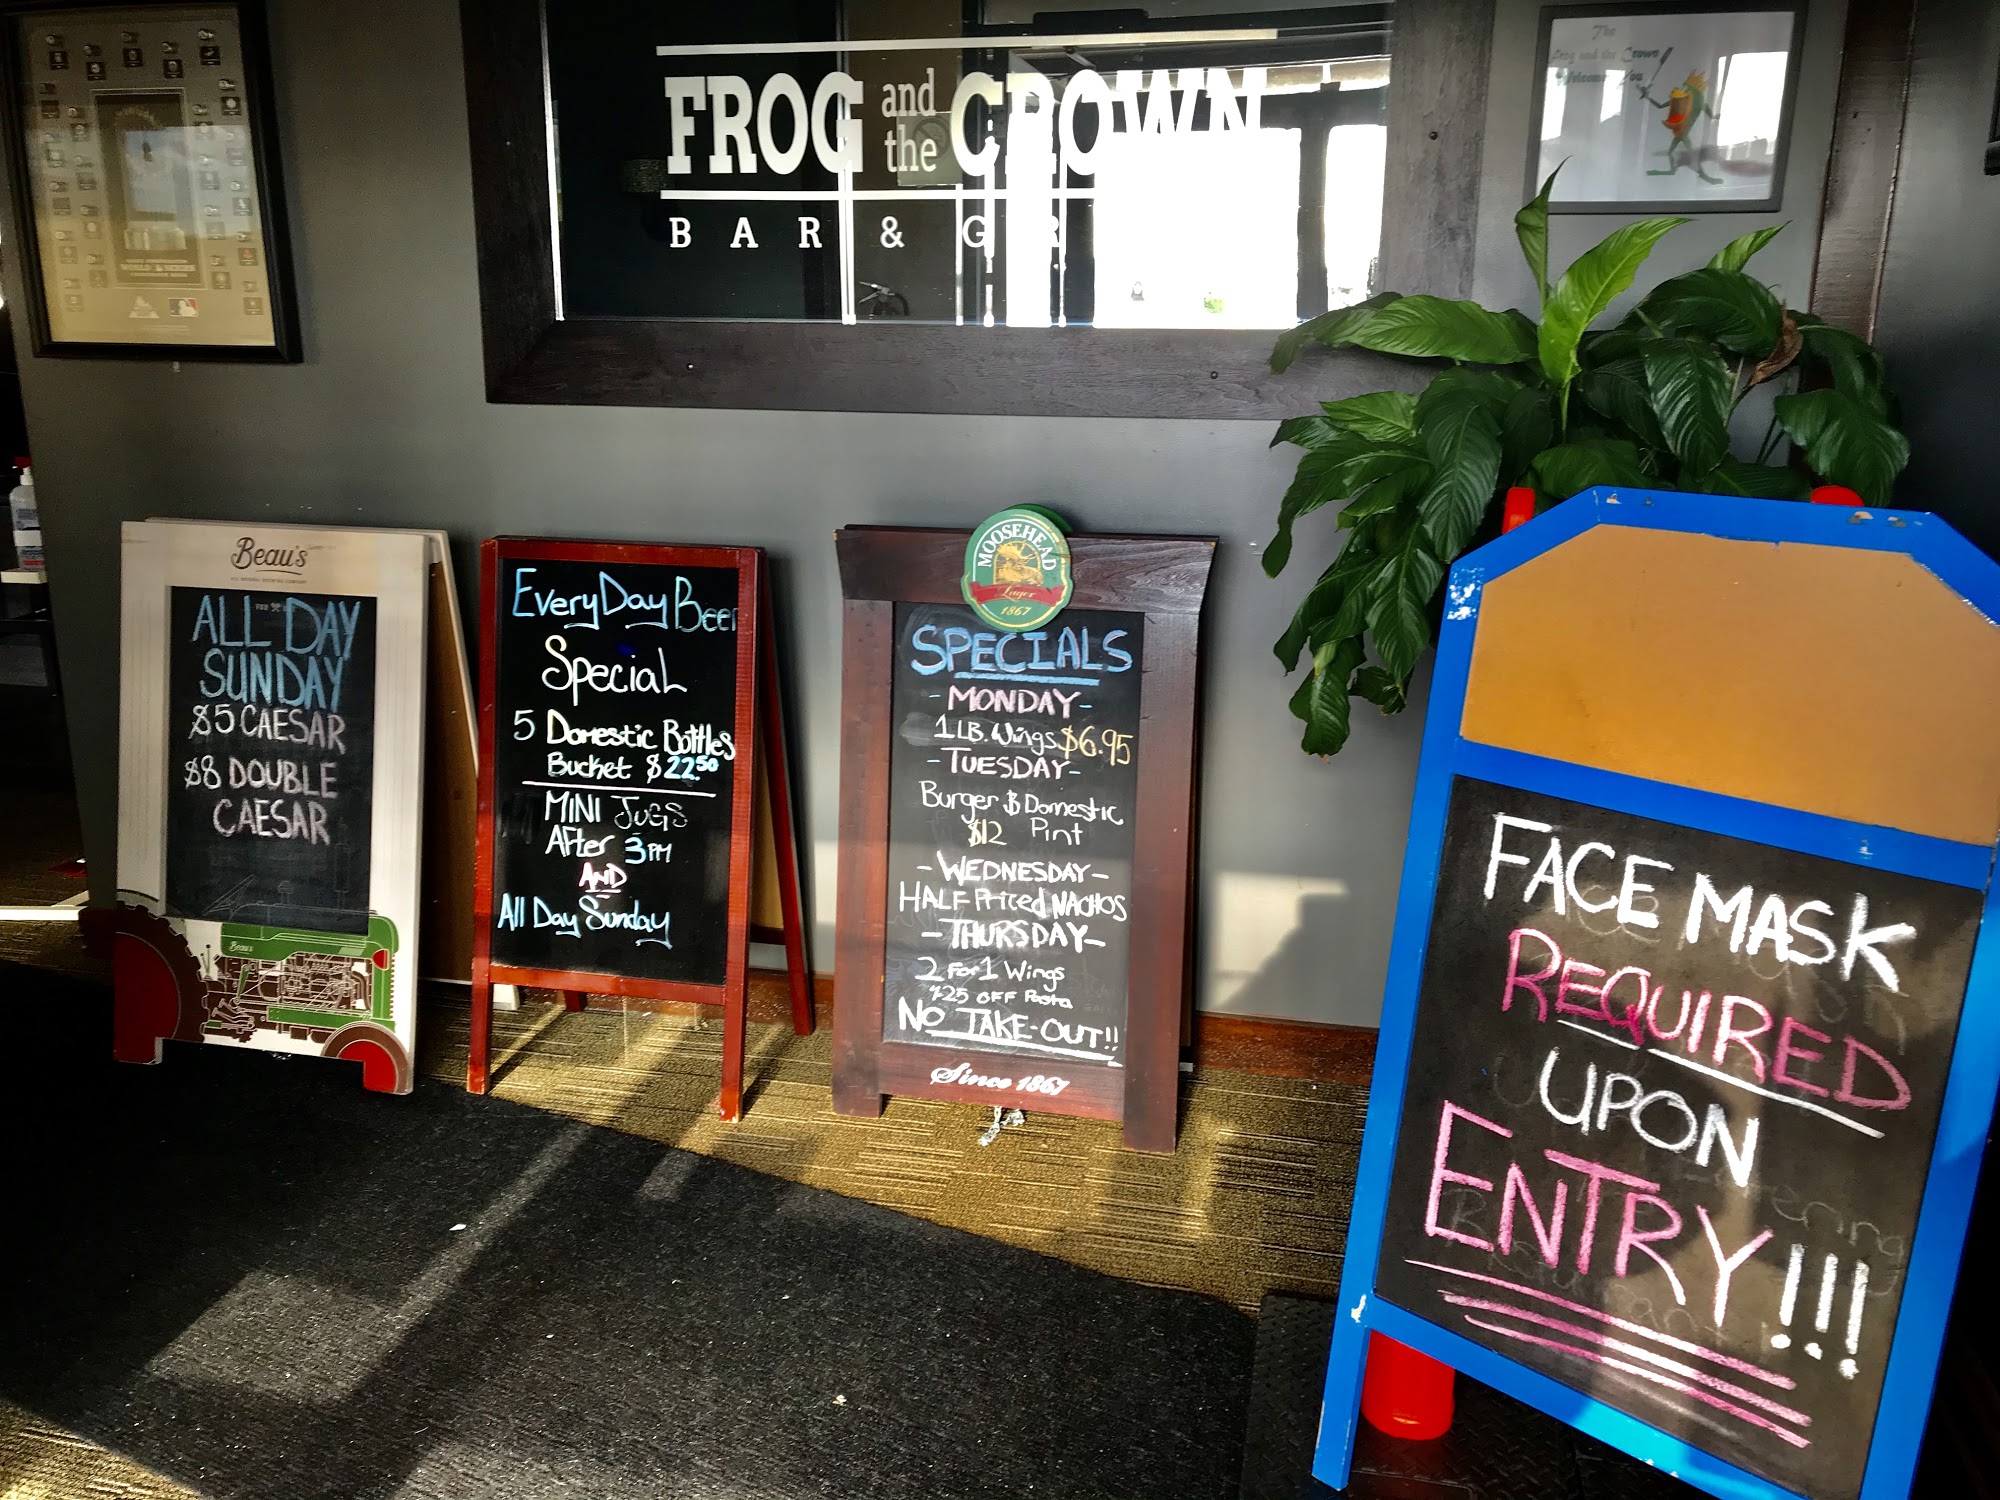 FROG and the CROWN
BAR & GR
The
Frog and the Crown
Welcomes You
WORLD SERIES
Beau's
ALL NATURAL BREWING COMPANY
ALL DAY
SUNDAY
$5 CAESAR
$8 DOUBLE
CAESAR
Beau's
EveryDay Beer
Special
5 Domestic Bottles
Bucket $22.50
MINI JUGS
After 3PM
AND
All Day Sunday
MOOSEHEAD
Lager
1867
SPECIALS
- MONDAY -
1 LB. Wings $6.95
- TUESDAY -
Burger & Domestic
$12 Pint
- WEDNESDAY -
HALF Priced NACHOS
- THURSDAY -
2 For 1 Wings
%25 OFF Pasta
No TAKE-OUT!!
Since 1867
FACE MASK
REQUIRED
UPON
ENTRY!!!